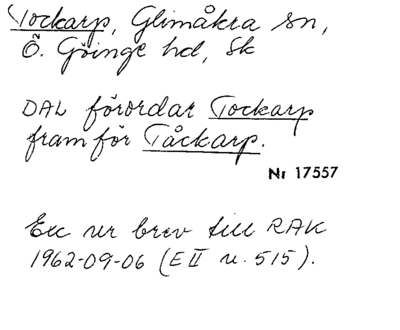 Tockarp, Glimåkra sn,
Ö. Göinge hd, Sk
DAL förordar Tockarp
framför Tåckarp.
Nr 17557
Exc ur brev till RAK
1962-09-06 (E II u. 515).